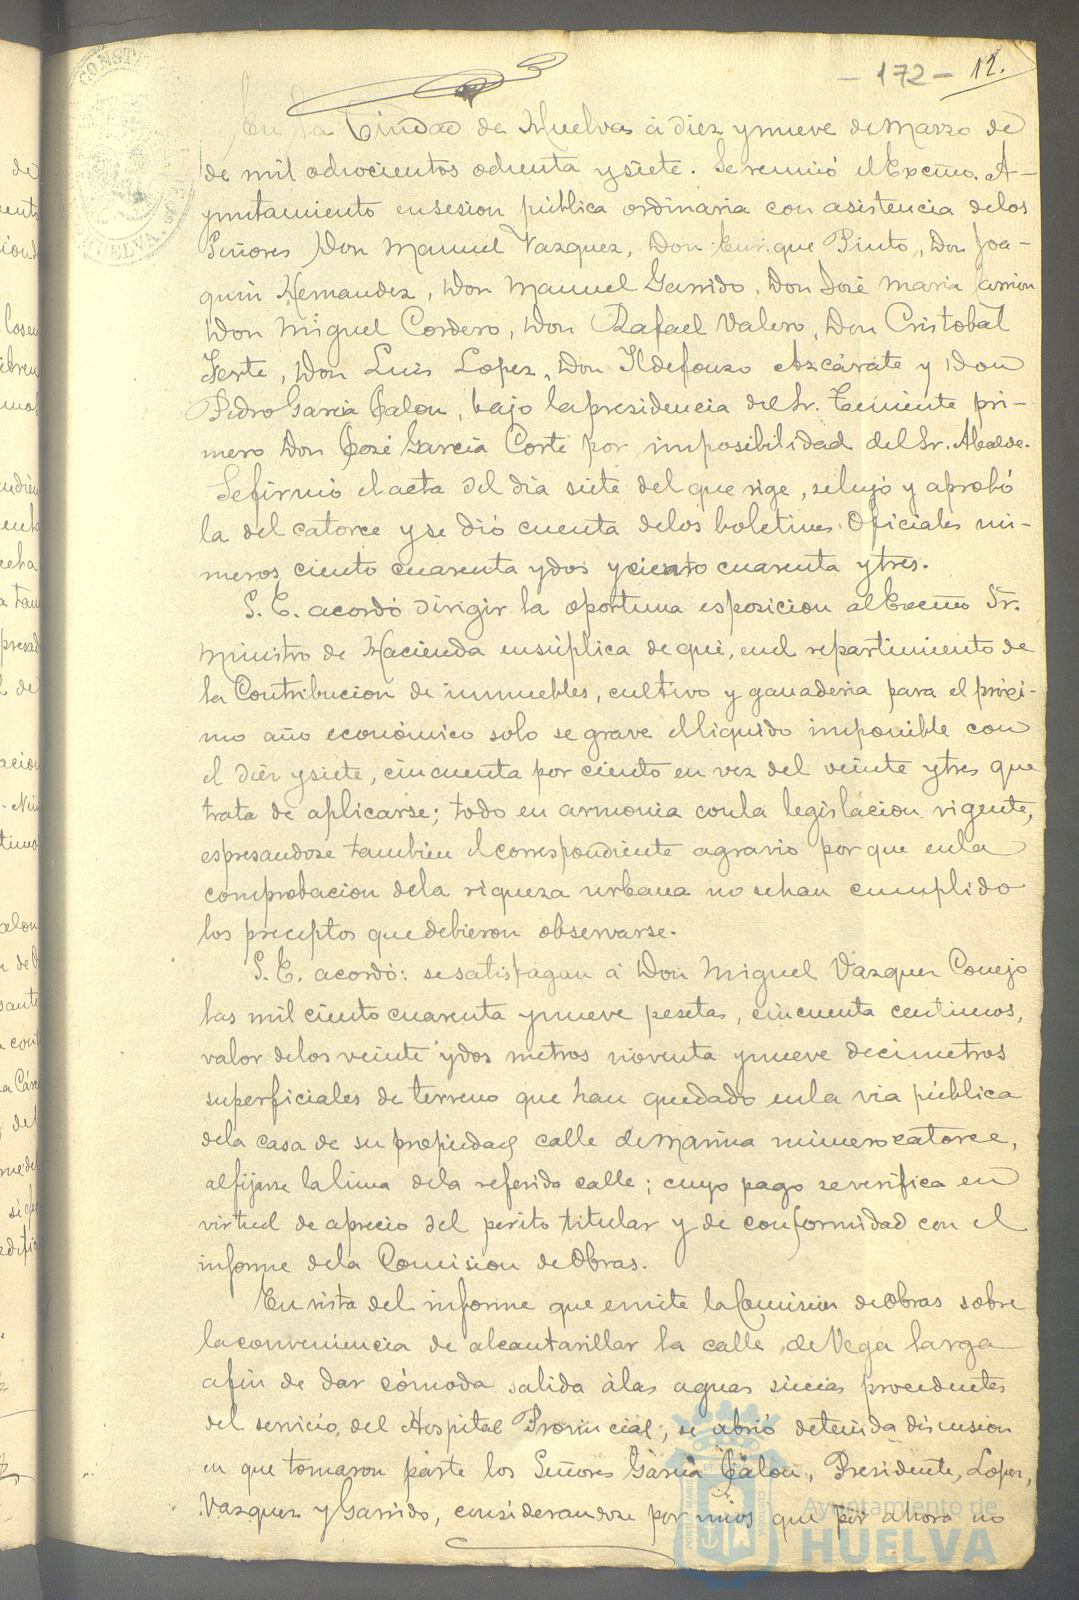 - 172 - 12.
En la Ciudad de Huelva à diez y nueve de Marzo de
de mil ochocientos ochenta y siete. Se reunió el Excmo. A-
yuntamiento en sesion pública ordinaria con asistencia de los
Señores Don Manuel Vazquez, Don Enrique Pinto, Don Joa-
quin Hernandez, Don Manuel Garrido, Don José Maria
Don Miguel Cordero, Don Rafael Valero, Don Cristobal
Forte, Don Luis Lopez, Don Ildefonso Azcárate y Don
Pedro Garcia Jalon, bajo la presidencia del Sr. Teniente pri-
mero Don José Garcia Corte por imposibilidad del Sr. Alcalde.
Se firmó el acta del dia siete del que rige, se leyó y aprobó
la del catorce y se dió cuenta de los boletines Oficiales nú-
meros ciento cuarenta y dos y ciento cuarenta y tres.
S. E. acordó dirigir la oportuna esposicion al Excmo Sr.
Ministro de Hacienda en súplica de que, en el repartimiento de
la Contribucion de inmuebles, cultivo y ganaderia para el próxi-
mo año económico solo se grave el liquido imponible con
el diez y siete, cincuenta por ciento en vez del veinte y tres que
trata de aplicarse; todo en armonia con la legislacion vigente,
espresandose tambien el correspondiente agravio por que en la
comprobacion de la riqueza urbana no se han cumplido
los preceptos que debieron observarse.
S. E. acordó: se satisfagan à Don Miguel Vazquez Conejo
las mil ciento cuarenta y nueve pesetas, cincuenta centimos,
valor de los veinte y dos metros noventa y nueve decimetros
superficiales de terreno que han quedado en la via pública
de la casa de su propiedad calle de Marina número catorce,
al fijarse la linea de la referida calle; cuyo pago se verifica en
virtud de aprecio del perito titular y de conformidad con el
informe de la Comision de Obras.
En vista del informe que emite la Comision de Obras sobre
la conveniencia de alcantarillar la calle de Vega larga
afin de dar cómoda salida à las aguas sucias procedentes
del servicio del Hospital Provincial; se abrió detenida discusion
en que tomaron parte los Señores Garcia Jalon, Presidente, Lopez,
Vazquez y Garrido, considerandose por unos que por ahora no
Ayuntamiento de
HUELVA